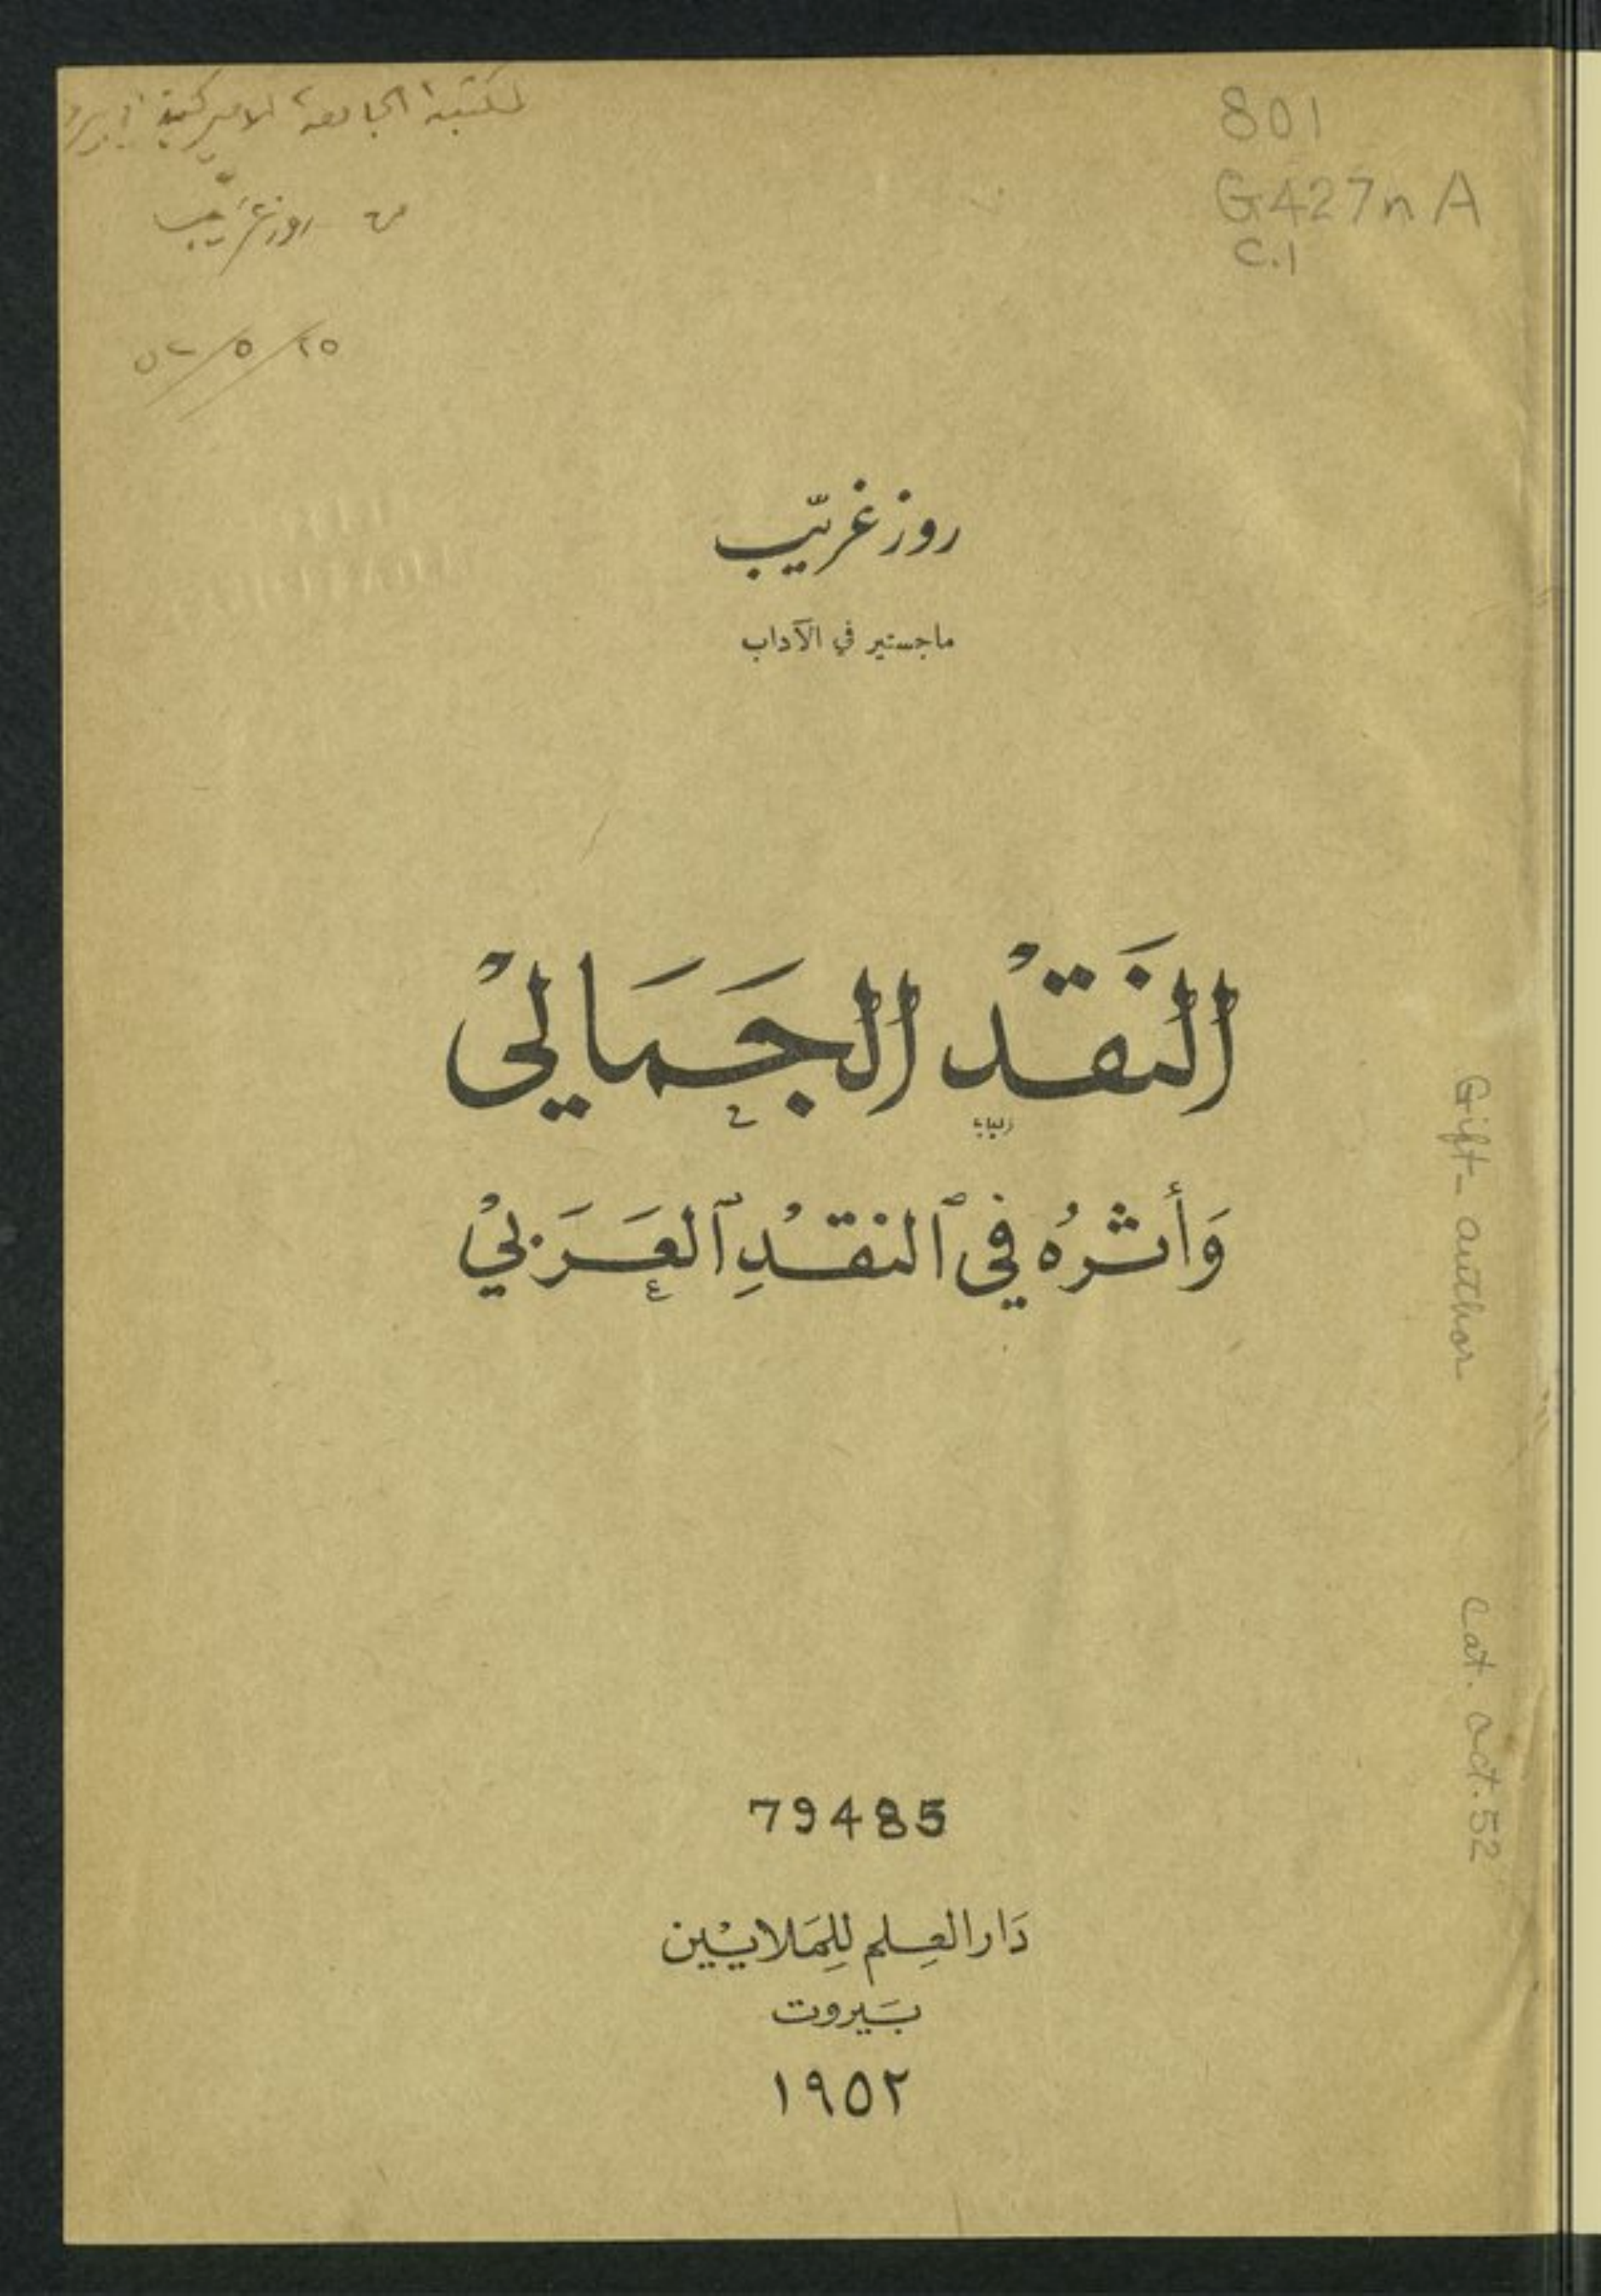 لمكتبة الجامعة الاميركية
من روز غريّب
٢٥/٥/٥٢
801
G427nA
C.1
روز غريّب
ماجستير في الآداب
النَقْد الجَمَاليْ
وَأثرُه في ٱلنقْدِ ٱلعَرَبيْ
Gift- author
Cat. Oct. 52
79485
دَار العِلم للِمَلايـيْن
بَيروت
١٩٥٢